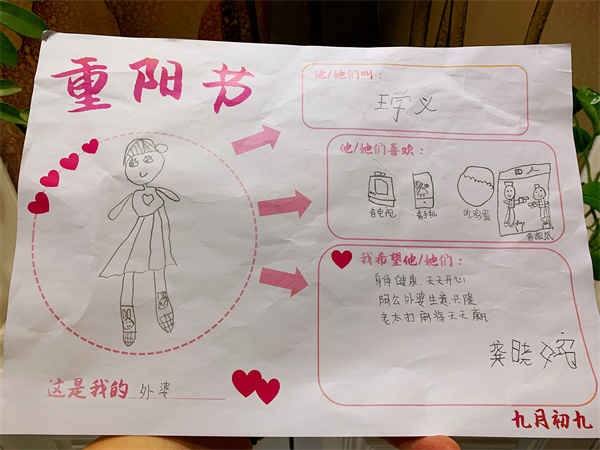 重阳节
他/她们叫：
王学义
他/她们喜欢：
看电视
看手机
吃鸡蛋
看报纸
我希望他/她们：
身体健康、天天开心
阿公外婆生意兴隆
老太打麻将天天赢
龚晓
这是我的外婆
九月初九